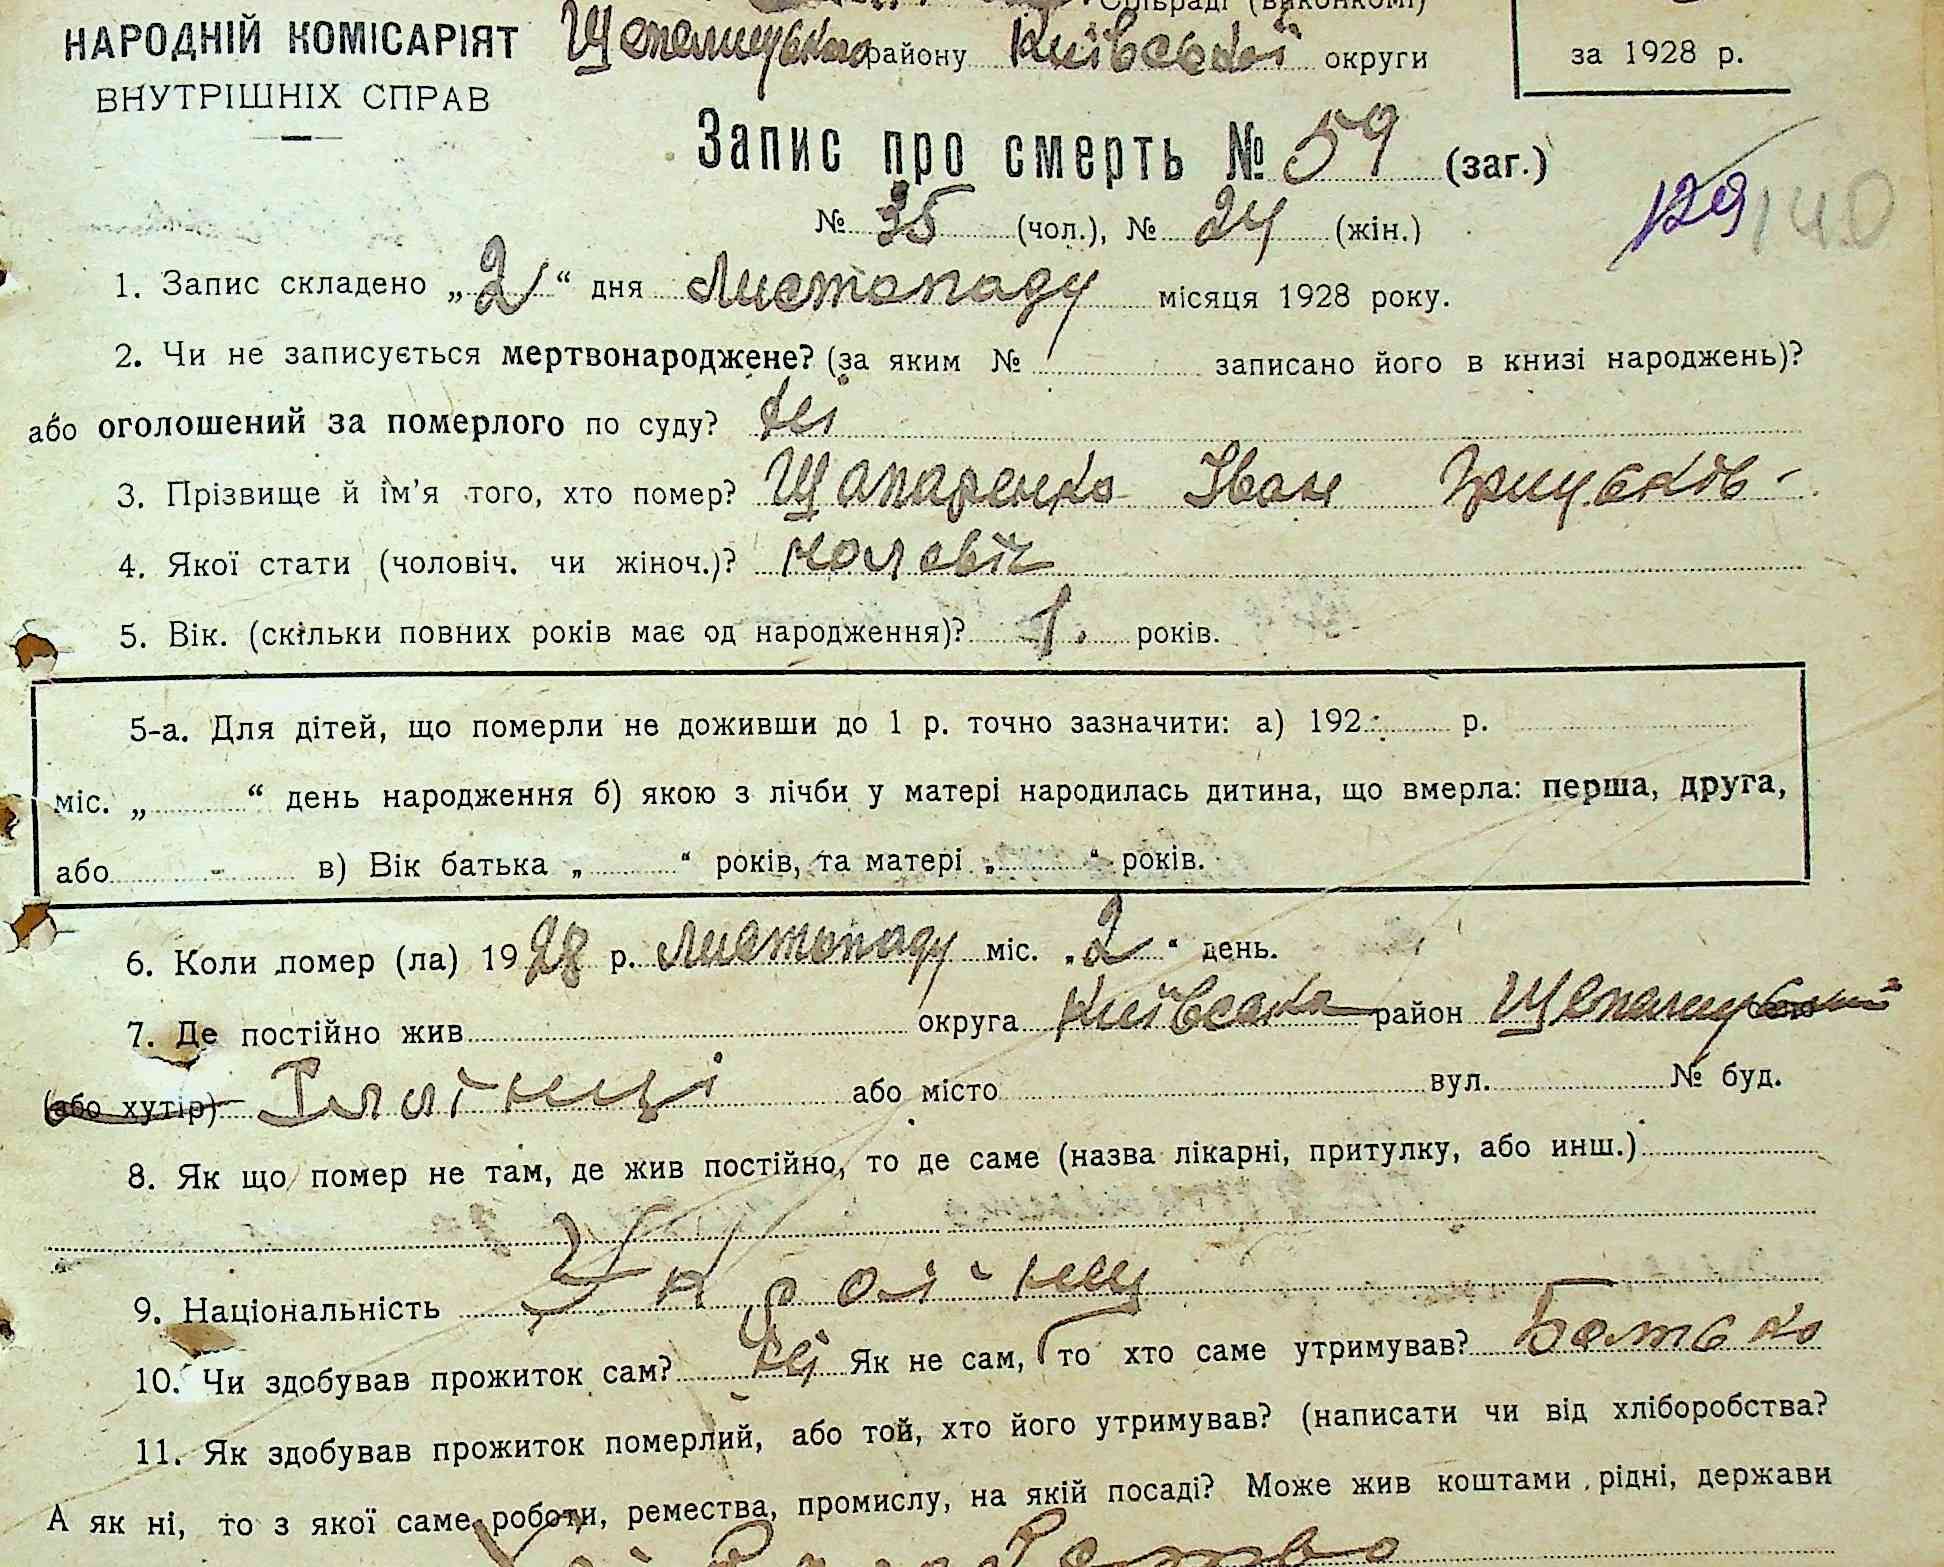 Сільраді (виконкомі)
НАРОДНІЙ КОМІСАРІЯТ
ВНУТРІШНІХ СПРАВ
району Київської округи
за 1928 р.
Запис про смерть № 59 (заг.)
№ 35 (чол.), № 24 (жін.)
129 140
1. Запис складено „2“ дня Листопаду місяця 1928 року.
2. Чи не записується мертвонароджене? (за яким № записано його в книзі народжень)?
або оголошений за померлого по суду? Ні
3. Прізвище й ім'я того, хто помер? Щапаренко Іван
4. Якої стати (чоловіч. чи жіноч.)? чоловіч
5. Вік. (скільки повних років має од народження)? 1. років.
5-а. Для дітей, що померли не доживши до 1 р. точно зазначити: а) 192 р.
міс. „ “ день народження б) якою з лічби у матері народилась дитина, що вмерла: перша, друга,
або - в) Вік батька „ “ років, та матері „ “ років.
6. Коли помер (ла) 1928 р. Листопаду міс. „2“ день.
7. Де постійно жив округа Київська район
(або хутір) Іллінці або місто вул. № буд.
8. Як що помер не там, де жив постійно, то де саме (назва лікарні, притулку, або инш.)
9. Національність Українець
10. Чи здобував прожиток сам? Ні Як не сам, то хто саме утримував? Батько
11. Як здобував прожиток померлий, або той, хто його утримував? (написати чи від хліборобства?
А як ні, то з якої саме роботи, ремества, промислу, на якій посаді? Може жив коштами рідні, держави